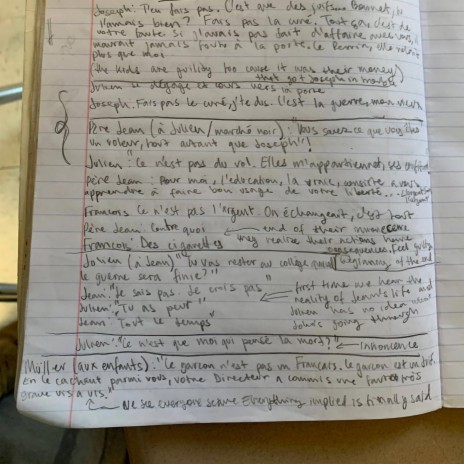 Joseph: T'en fais pas. C'est que des juifs... Bonnet, tu
l'aimais bien? Fais pas la curé. Tout ça c'est de
votre faute. Si j'avais pas fait d'affaire avec vous,
m'aurait jamais foutu à la porte. La Perrin, elle volait
plus que moi
(the kids are guility too cause it was their money)
that got Joseph in trouble
Julien se dégage et cours vers la porte
Joseph: Fais pas le curé, j'te dis. C'est la guerre, mon vieux
Père Jean (à Julien/marché noir): "Vous savez ce que vous êtes
un voleur, tout autant que Joseph"!
Julien: "Ce n'est pas du vol. Elles m'appartiennent, ses confitures
Père Jean: Pour moi, l'education, la vraie, consiste à vous
apprendre à faire bon usage de votre liberte...
l'argent
Francois: Ce n'est pas l'argent. On échangeait, c'est tout
Père Jean: Contre quoi ← end of their innocence
Francois: Des cigarettes they realize their actions have
consequences. Feel guilty
Julien (à Jean) "Tu vas rester au collège quand beginning of the end
le guerre sera finie?"
Jean: "Je sais pas. Je crois pas" ← first time we hear the
Julien: "Tu as peur" reality of Jean's life
Julien has no idea what
Jean: Tout le temps John's going through
Julien: "Ce n'est que moi qui pense la mort?" ← innonence
Müller (aux enfants): "Ce garcon n'est pas un Francais. Ce garcon est un juif.
En le cachant parmi vous, votre Directeur a commis une faute très
grave vis à vis.
← We see everyone Everything implied is finally said